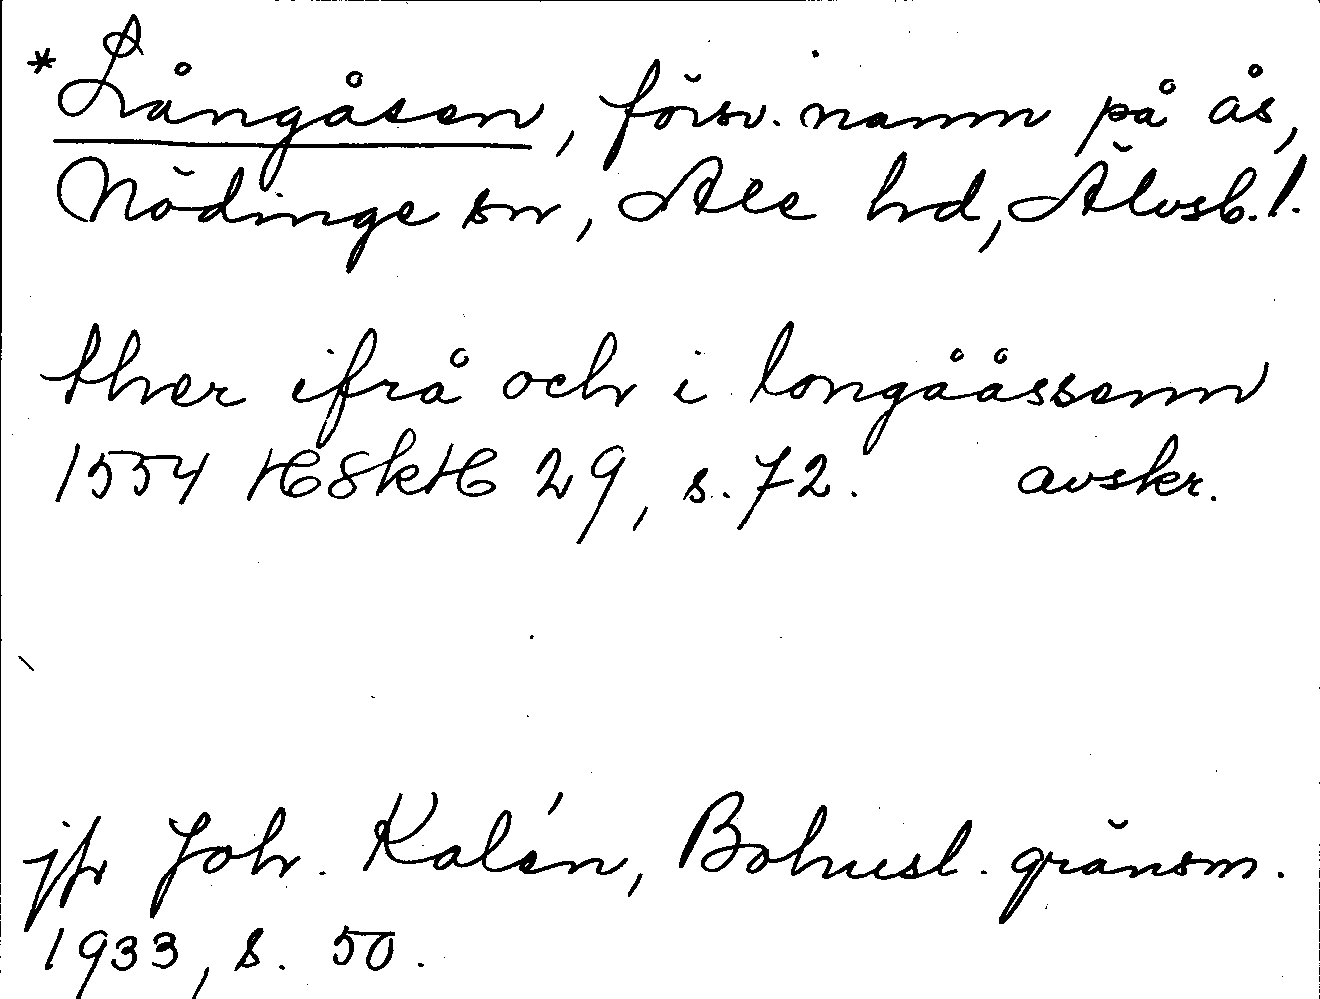 *Långåsen, försv. namn på ås,
Nödinge sn, Ale hd, Älvsb. l.
ther ifrå och i longååssenn
1554 HSkH 29, s. 72. avskr.
jfr Joh. Kalén, Bohusl. gränsm.
1933, s. 50.